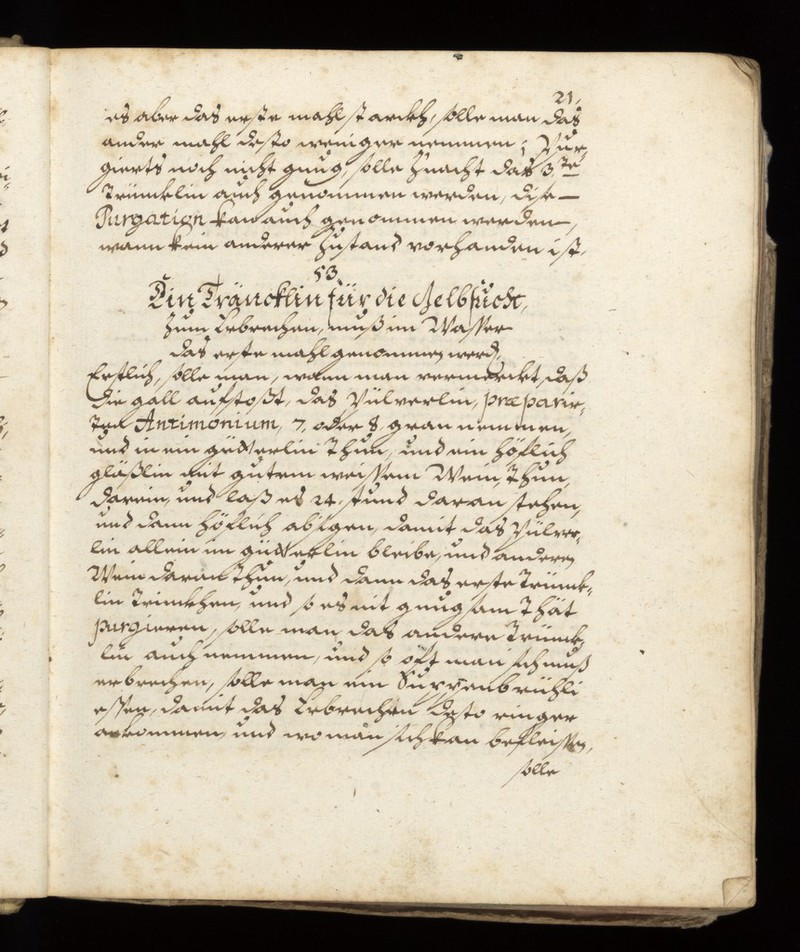 21.
es aber das erste mahl starckh, solle man das
ander mahl desto weniger nemmen; Pur-
gierts noch nicht gnug, solle Znacht das 3.te
Trüncklin auch genommen werden, dise
Purgation kan auch genommen werden,
wann kein anderer Zustand vorhanden ist.
53
Ein Träncklin für die Gelbsucht,
Zum Erbrechen, muß im Wasser
das erste mahl genommen werd.
Erstlich, solle man, wann man vermerckt, daß
die gall aufstoßt, das Pülverlin, præparir-
ten Antimonium, 7. oder 8. gran nemmen,
und in ein gütterlin Thun, und ein höflich
gläßlin mit gutem weissem Wein, Thun,
darein, und laß es 24. stund daran stehen,
und dann höflich absigen, damit das Pülver-
lin allein im gütterlin bleibe, und anderen
Wein daran Thun, und dann das erste Trünck-
lin Trinckhen, und so es nit gnugsam Thät
purgieren, solle man das andere Trünck-
lin auch nemmen, und so offt man sich muß
erbrechen, solle man ein Suppenbrühli
essen, damit das Erbrechen desto ringer
ankommen, und wo man sich kan befleissen,
solle